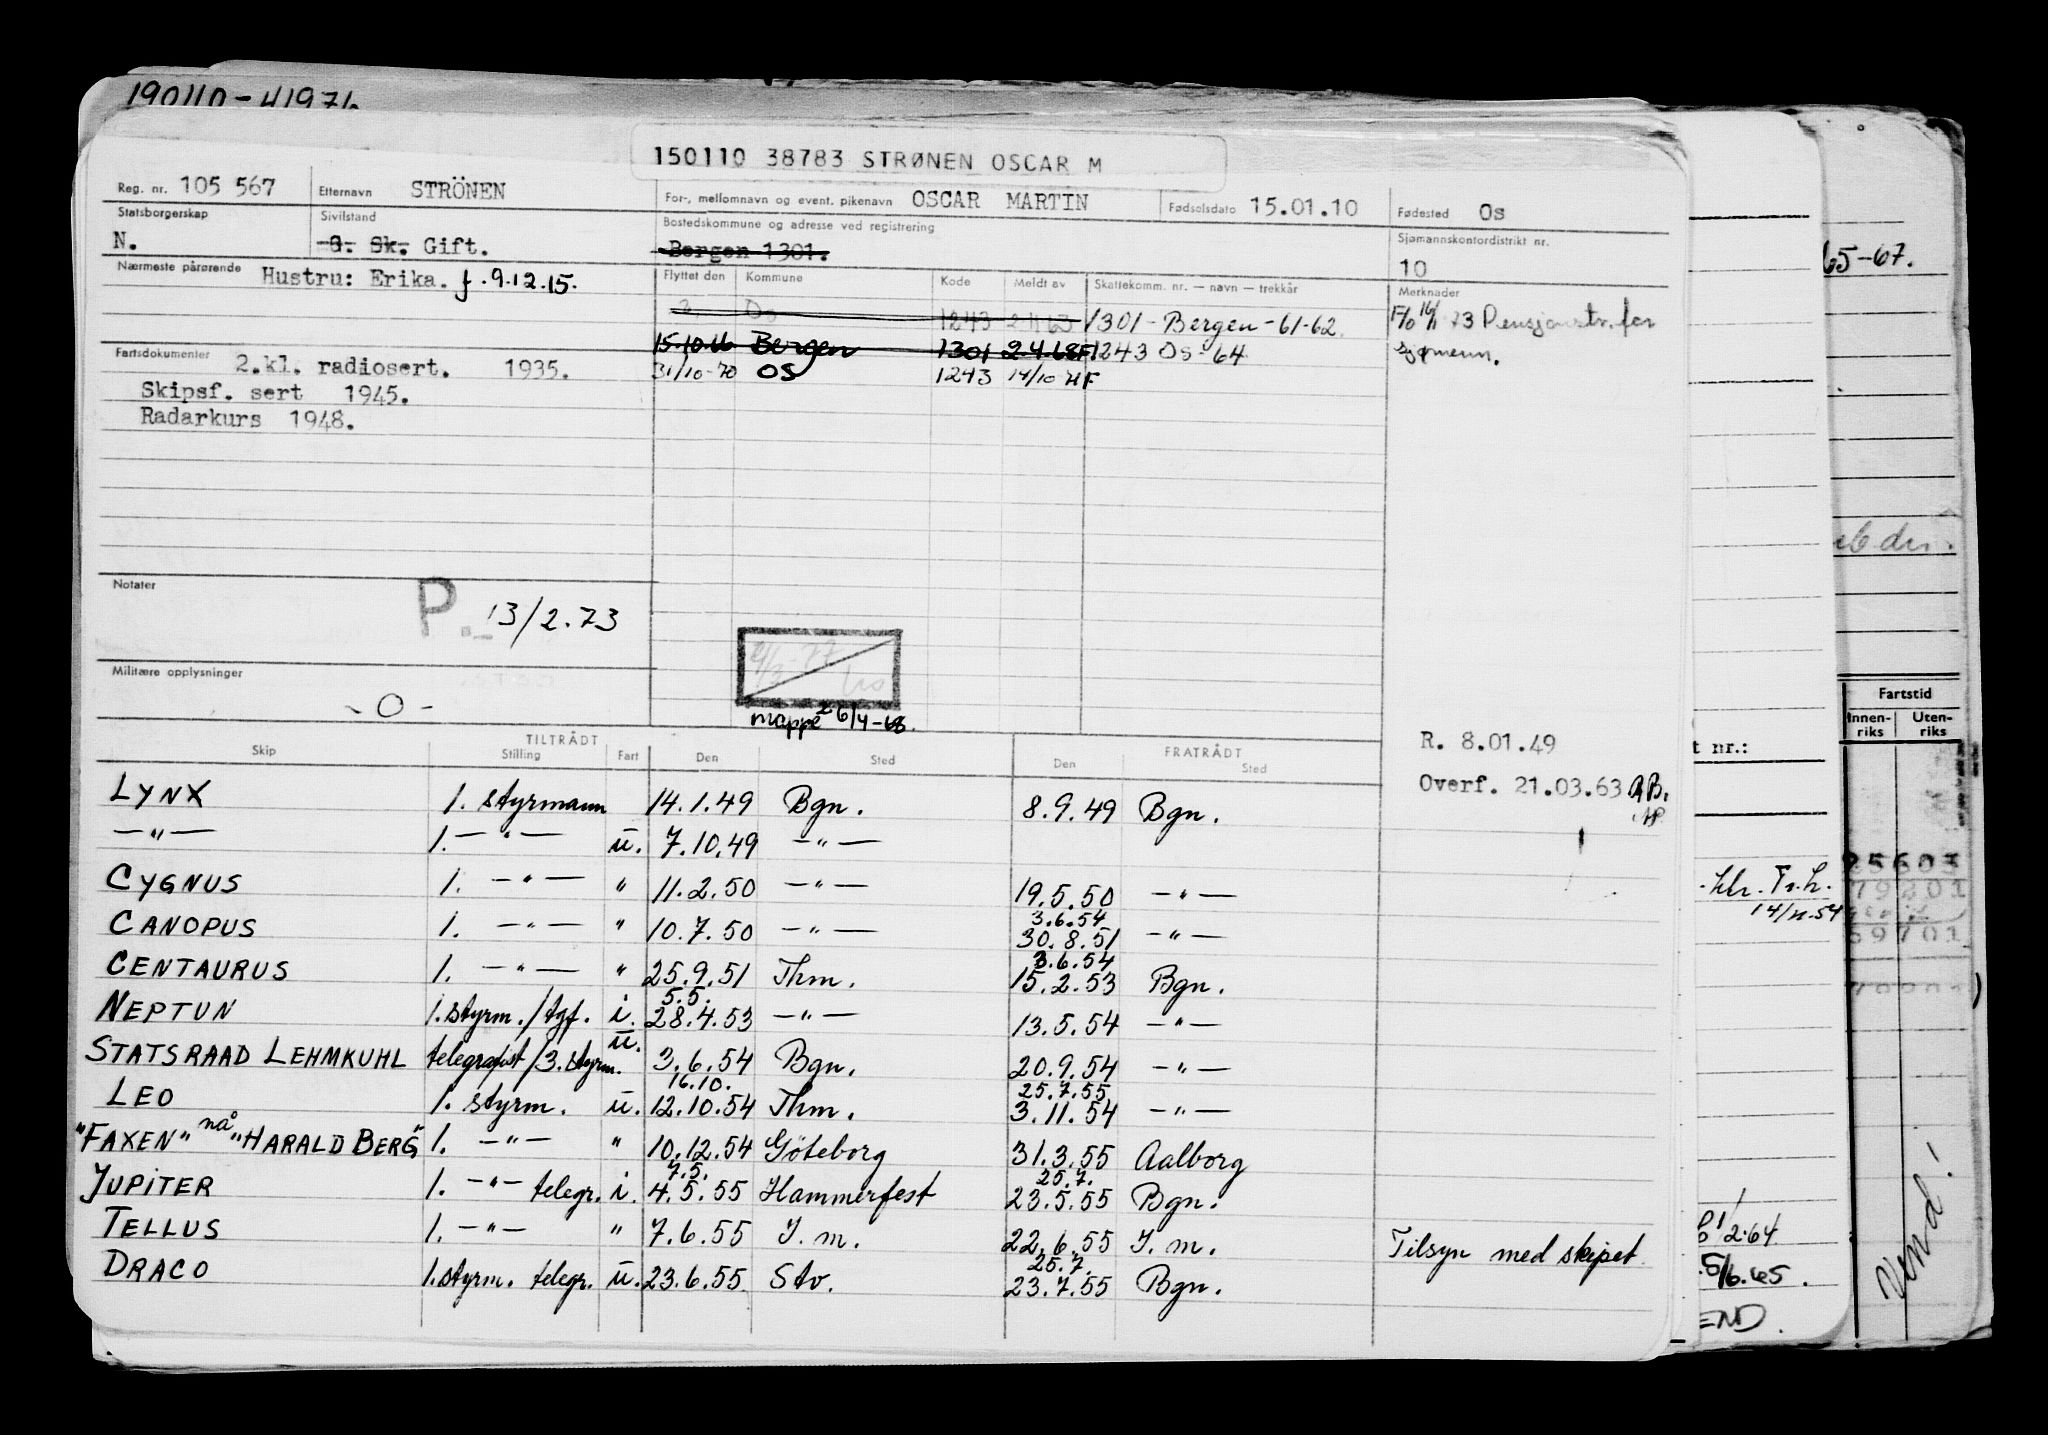 190110-41976
150110 38783 STRØNEN OSCAR M
Reg. nr. 105 567 Etternavn STRÖNEN For-, mellomnavn og event. pikenavn OSCAR MARTIN Fødselsdato 15.01.10 Fødested Os
Statsborgerskap Sivilstand Bostedskommune og adresse ved registrering Sjømannskontordistrikt nr.
N. G. Sk. Gift. Bergen 1301. 10
Nærmeste pårørende Hustru: Erika. f. 9.12.15. Flyttet den Kommune Kode Meldt av Skattekomm. nr. — navn — trekkår Merknader
Os 1243 1301 - Bergen - 61-62. 73 Pensjonstr. for
15.10.66 Bergen 1301 2.4.68F 1243 Os - 64 sjømenn.
31/10-70 OS 1243 14/10 HF
Fartsdokumenter 2.kl. radiosert. 1935.
Skipsf. sert 1945.
Radarkurs 1948.
Notater
P. 13/2.73
Militære opplysninger
- O -
mappe 26/4-68.
R. 8.01.49
Overf. 21.03.63
TILTRÅDT FRATRÅDT
Skip Stilling Fart Den Sted Den Sted
LYNX 1. styrmann 14.1.49 Bgn. 8.9.49 Bgn.
—"— 1. —"— u. 7.10.49 —"—
CYGNUS 1. —"— " 11.2.50 —"— 19.5.50 —"—
3.6.54
CANOPUS 1. —"— " 10.7.50 —"— 30.8.51 —"—
3.6.54
CENTAURUS 1. —"— " 25.9.51 Thm. 15.2.53 Bgn.
5.5.
NEPTUN 1. styrm./tgf. i. 28.4.53 —"— 13.5.54 —"—
STATSRAAD LEHMKUHL telegrafist/3. styrm. u. 3.6.54 Bgn. 20.9.54 —"—
16.10. 25.7.55
LEO 1. styrm. u. 12.10.54 Thm. 3.11.54 —"—
"FAXEN" nå "HARALD BERG" 1. —"— " 10.12.54 Göteborg 31.3.55 Aalborg
7.5. 25.7.
JUPITER 1. —"— telegr. i. 4.5.55 Hammerfest 23.5.55 Bgn.
TELLUS 1. —"— " 7.6.55 I. m. 22.6.55 I. m. Tilsyn med skipet
25.7.
DRACO 1. styrm. telegr. u. 23.6.55 Stv. 23.7.55 Bgn.
65-67.
Fartstid
Innen-riks Uten-riks
t nr.:
25603
79201
14/11.54
59701
2.64
5/6.65.
END.
Vend!